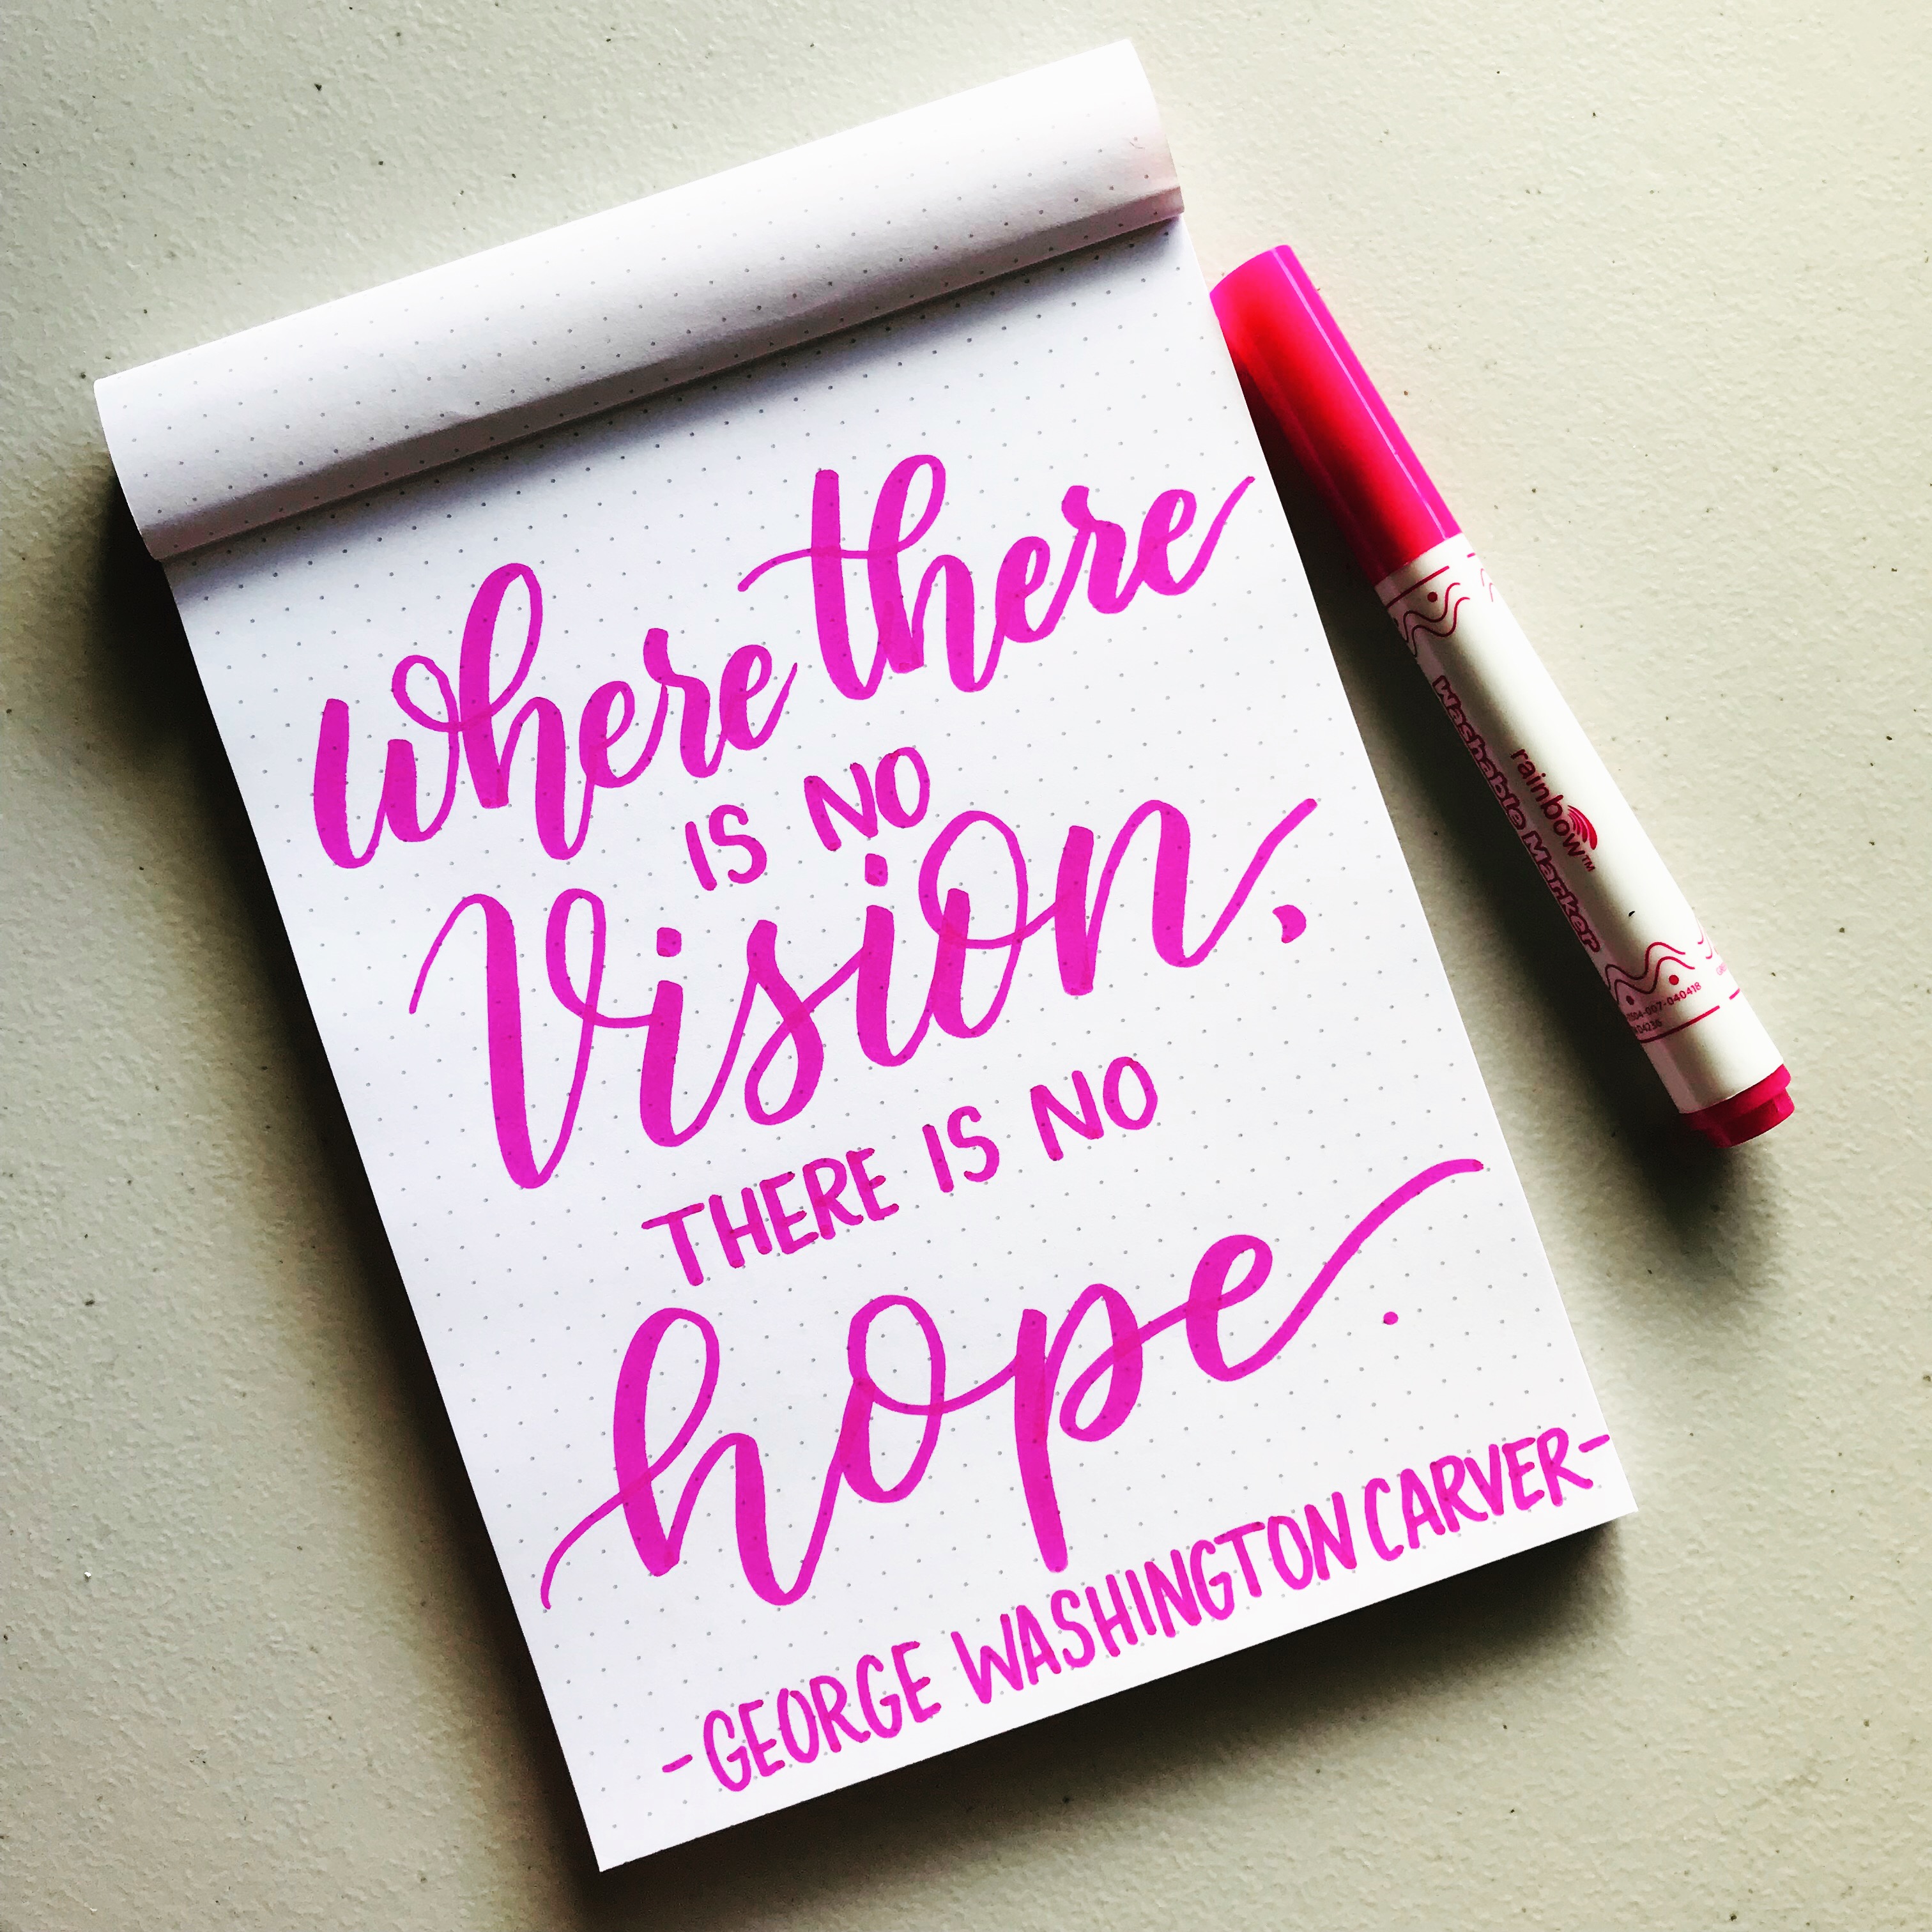 where there
IS NO
Vision,
THERE IS NO
hope.
-GEORGE WASHINGTON CARVER-
rainbow™
Washable Marker